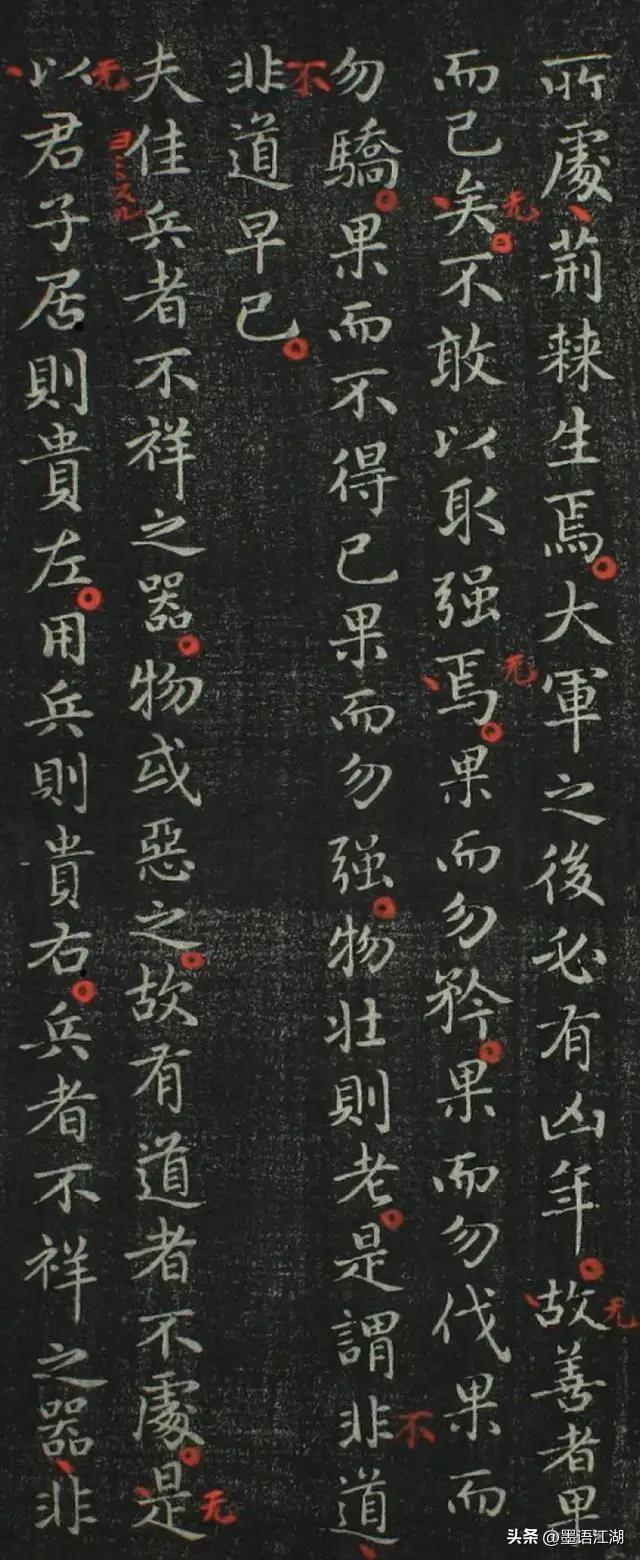 所處荊棘生焉大軍之後必有凶年故善者果
无
而已矣不敢以取强焉果而勿矜果而勿伐果而
无
无
勿驕果而不得已果而勿强物壯則老是謂非道
不
非道早已
不
夫佳兵者不祥之器物或惡之故有道者不處是
ヨミスル
无
以君子居則貴左用兵則貴右兵者不祥之器非
无
头条 @墨语江湖